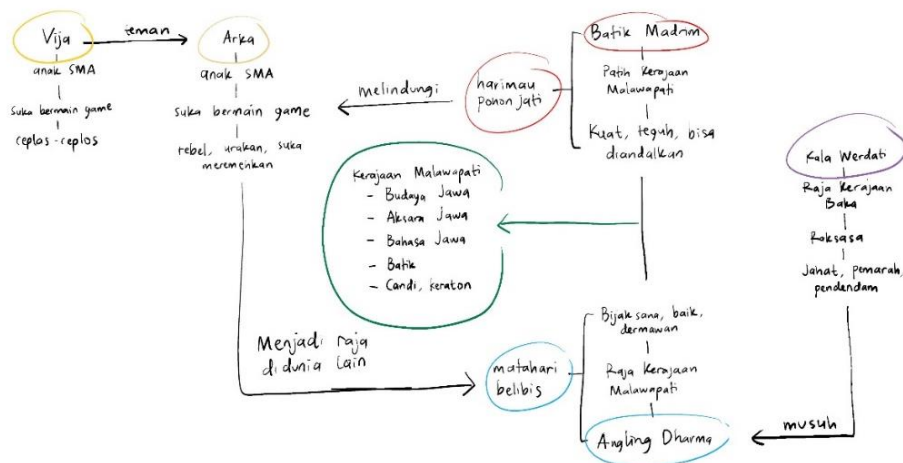 Vija
teman
Arka
anak SMA
suka bermain game
ceplos-ceplos
anak SMA
suka bermain game
rebel, urakan, suka
meremehkan
melindungi
harimau
pohon jati
Batik Madrim
Patih Kerajaan
Malawapati
Kuat, teguh, bisa
diandalkan
Kerajaan Malawapati
- Budaya Jawa
- Aksara Jawa
- Bahasa Jawa
- Batik
- Candi, keraton
Kala Werdati
Raja Kerajaan
Baka
Raksasa
Jahat, pemarah,
pendendam
Menjadi raja
didunia lain
matahari
belibis
Bijaksana, baik,
dermawan
Raja Kerajaan
Malawapati
Angling Dharma
musuh